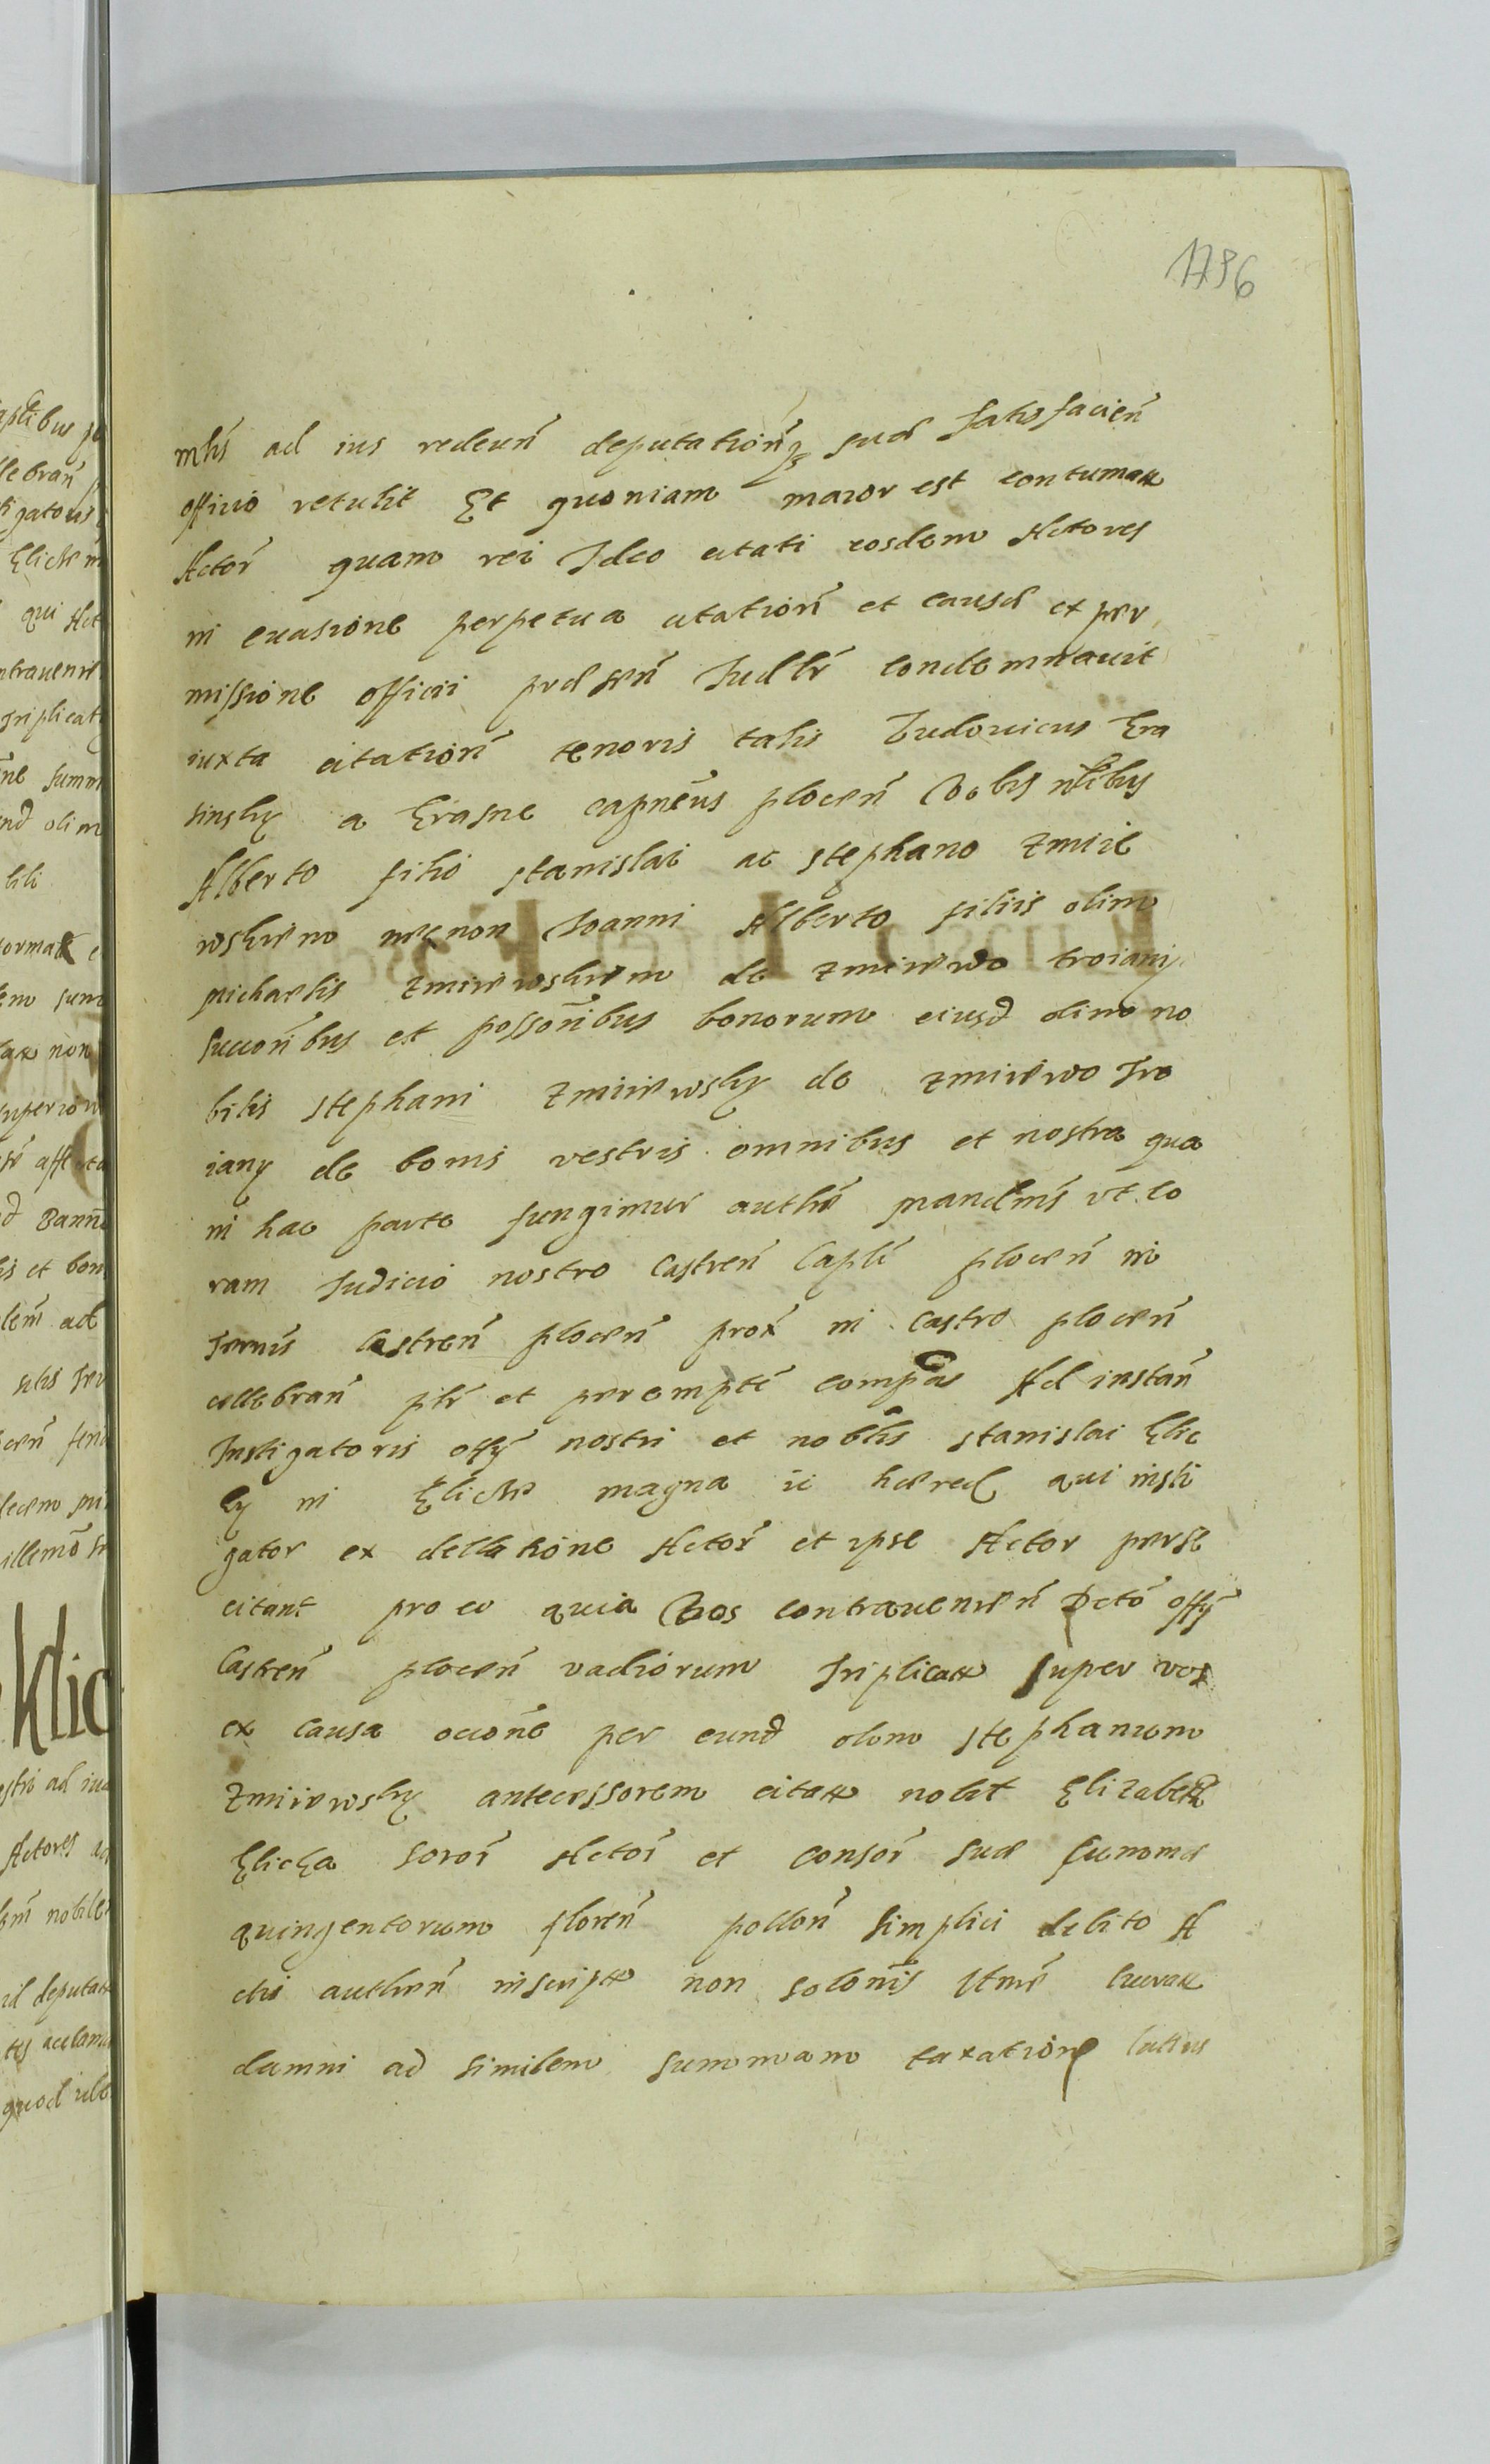 1796
mls ad ius redeun̄ deputationq̃ suæ satisfacien̄
officio retulit Et quoniam maior est contumax
Actor̄ quam rei Ideo citati eosdem Actores
in euasione perpetua citation̄ et causæ ex per
missione officii præsen̄ Iudlr̄ condemnauit
iuxta citation̄ tenoris talis Ludouicus Kra
sinsky a Krasne capneus plocen̄ Vobis nlibus
Alberto filio Stanislai ac Stephano Zmiie
wskiemo necnon Joanni Alberto filiis olim
Michaelis Zmiiewskiemo de Zmiiewo troiany
succoribus et possoribus bonorum eiusd olim no
bilis Stephani Zmiiewsky de Zmiiewo Tro
iany de bonis vestris omnibus et nostra qua
in hac parte fungimur authe mandms vt co
ram Iudicio nostro Castren̄ Capli plocen̄ in
Termīs Castren̄ plocen̄ prox̄ in Castro plocen̄
cellebran̄ plr̄ et perempte compās Ad instan̄
Instigatoris offy nostri et nobilis Stanislai Klic
ky in Kliczki magna ii hæred qui insti
gator ex dellatione Actor̄ et ipse Actor per se
citant pro eo quia Vos contrauenien̄ Dcto offy
Castren̄ plocen̄ vadiorum Triplicax super vos
ex causa occone per eund olim Stephanum
Zmiiewsky antecessorem citax nobil Elizabeth
Klicka soror̄ Actor̄ et consor̄ suæ summæ
quingentorum floren̄ pollon̄ simplici debito A
ctis authen̄ inscriptæ non solonis Itme lucrax
damni ad similem summam taxatione latius